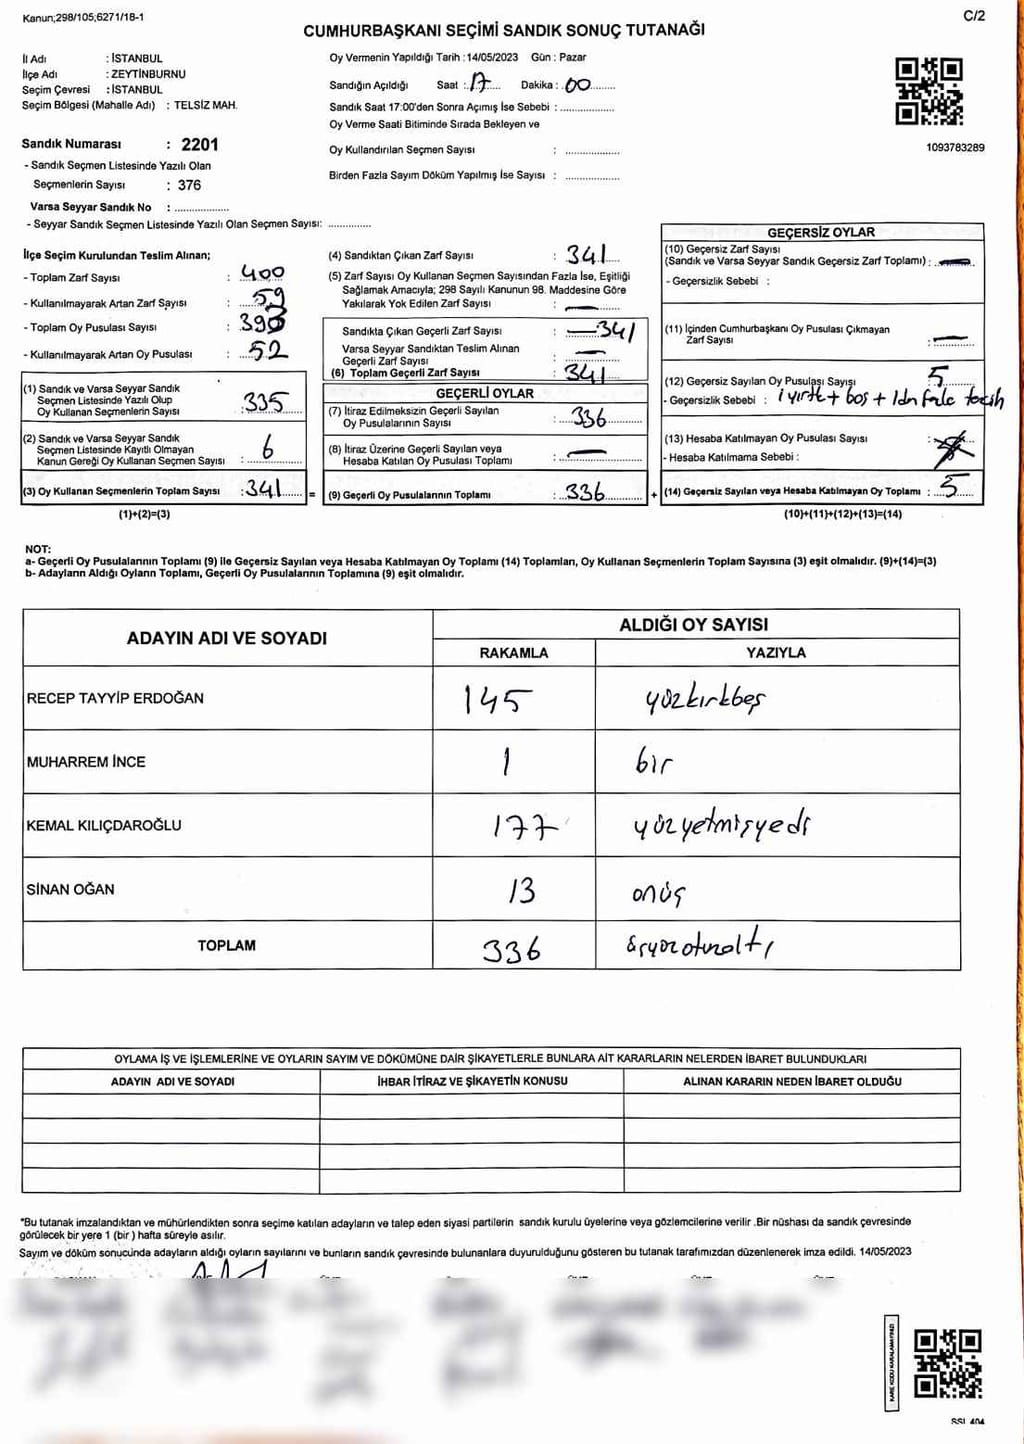 Kanun;298/105;6271/18-1
C/2
CUMHURBAŞKANI SEÇİMİ SANDIK SONUÇ TUTANAĞI
İl Adı : İSTANBUL
İlçe Adı : ZEYTİNBURNU
Seçim Çevresi : İSTANBUL
Seçim Bölgesi (Mahalle Adı) : TELSİZ MAH.
Oy Vermenin Yapıldığı Tarih : 14/05/2023 Gün : Pazar
Sandığın Açıldığı Saat : 17 Dakika : 00
Sandık Saat 17:00'den Sonra Açımış İse Sebebi : ....................
Oy Verme Saati Bitiminde Sırada Bekleyen ve
Oy Kullandırılan Seçmen Sayısı : ....................
Birden Fazla Sayım Döküm Yapılmış İse Sayısı : ....................
1093783289
Sandık Numarası : 2201
- Sandık Seçmen Listesinde Yazılı Olan
Seçmenlerin Sayısı : 376
Varsa Seyyar Sandık No : ....................
- Seyyar Sandık Seçmen Listesinde Yazılı Olan Seçmen Sayısı: ...............
İlçe Seçim Kurulundan Teslim Alınan;
- Toplam Zarf Sayısı : 400
- Kullanılmayarak Artan Zarf Sayısı : 59
- Toplam Oy Pusulası Sayısı : 393
- Kullanılmayarak Artan Oy Pusulası : 52
(1) Sandık ve Varsa Seyyar Sandık
Seçmen Listesinde Yazılı Olup
Oy Kullanan Seçmenlerin Sayısı : 335
(2) Sandık ve Varsa Seyyar Sandık
Seçmen Listesinde Kayıtlı Olmayan
Kanun Gereği Oy Kullanan Seçmen Sayısı : 6
(3) Oy Kullanan Seçmenlerin Toplam Sayısı : 341 =
(1)+(2)=(3)
(4) Sandıktan Çıkan Zarf Sayısı : 341
(5) Zarf Sayısı Oy Kullanan Seçmen Sayısından Fazla İse, Eşitliği
Sağlamak Amacıyla; 298 Sayılı Kanunun 98. Maddesine Göre
Yakılarak Yok Edilen Zarf Sayısı : —
Sandıkta Çıkan Geçerli Zarf Sayısı : — 341
Varsa Seyyar Sandıktan Teslim Alınan
Geçerli Zarf Sayısı : —
(6) Toplam Geçerli Zarf Sayısı : 341
GEÇERLİ OYLAR
(7) İtiraz Edilmeksizin Geçerli Sayılan
Oy Pusulalarının Sayısı : 336
(8) İtiraz Üzerine Geçerli Sayılan veya
Hesaba Katılan Oy Pusulası Toplamı : —
(9) Geçerli Oy Pusulalarının Toplamı : 336 +
GEÇERSİZ OYLAR
(10) Geçersiz Zarf Sayısı
(Sandık ve Varsa Seyyar Sandık Geçersiz Zarf Toplamı) : —
- Geçersizlik Sebebi :
(11) İçinden Cumhurbaşkanı Oy Pusulası Çıkmayan
Zarf Sayısı : —
(12) Geçersiz Sayılan Oy Pusulası Sayısı : 5
- Geçersizlik Sebebi : yırtk + boş + 1den fazla tercih
(13) Hesaba Katılmayan Oy Pusulası Sayısı :
- Hesaba Katılmama Sebebi :
(14) Geçersiz Sayılan veya Hesaba Katılmayan Oy Toplamı : 5
(10)+(11)+(12)+(13)=(14)
NOT:
a- Geçerli Oy Pusulalarının Toplamı (9) İle Geçersiz Sayılan veya Hesaba Katılmayan Oy Toplamı (14) Toplamları, Oy Kullanan Seçmenlerin Toplam Sayısına (3) eşit olmalıdır. (9)+(14)=(3)
b- Adayların Aldığı Oyların Toplamı, Geçerli Oy Pusulalarının Toplamına (9) eşit olmalıdır.
ADAYIN ADI VE SOYADI
ALDIĞI OY SAYISI
RAKAMLA YAZIYLA
RECEP TAYYİP ERDOĞAN 145 yüzkırkbeş
MUHARREM İNCE 1 bir
KEMAL KILIÇDAROĞLU 177 yüzyetmişyedi
SİNAN OĞAN 13 onüç
TOPLAM 336 üçyüzotuzaltı
OYLAMA İŞ VE İŞLEMLERİNE VE OYLARIN SAYIM VE DÖKÜMÜNE DAİR ŞİKAYETLERLE BUNLARA AİT KARARLARIN NELERDEN İBARET BULUNDUKLARI
ADAYIN ADI VE SOYADI İHBAR İTİRAZ VE ŞİKAYETİN KONUSU ALINAN KARARIN NEDEN İBARET OLDUĞU
*Bu tutanak imzalandıktan ve mühürlendikten sonra seçime katılan adayların ve talep eden siyasi partilerin sandık kurulu üyelerine veya gözlemcilerine verilir .Bir nüshası da sandık çevresinde
görülecek bir yere 1 (bir ) hafta süreyle asılır.
Sayım ve döküm sonucunda adayların aldığı oyların sayılarını ve bunların sandık çevresinde bulunanlara duyurulduğunu gösteren bu tutanak tarafımızdan düzenlenerek imza edildi. 14/05/2023
KARE KODU KARALAMAYINIZ!
SSI 404